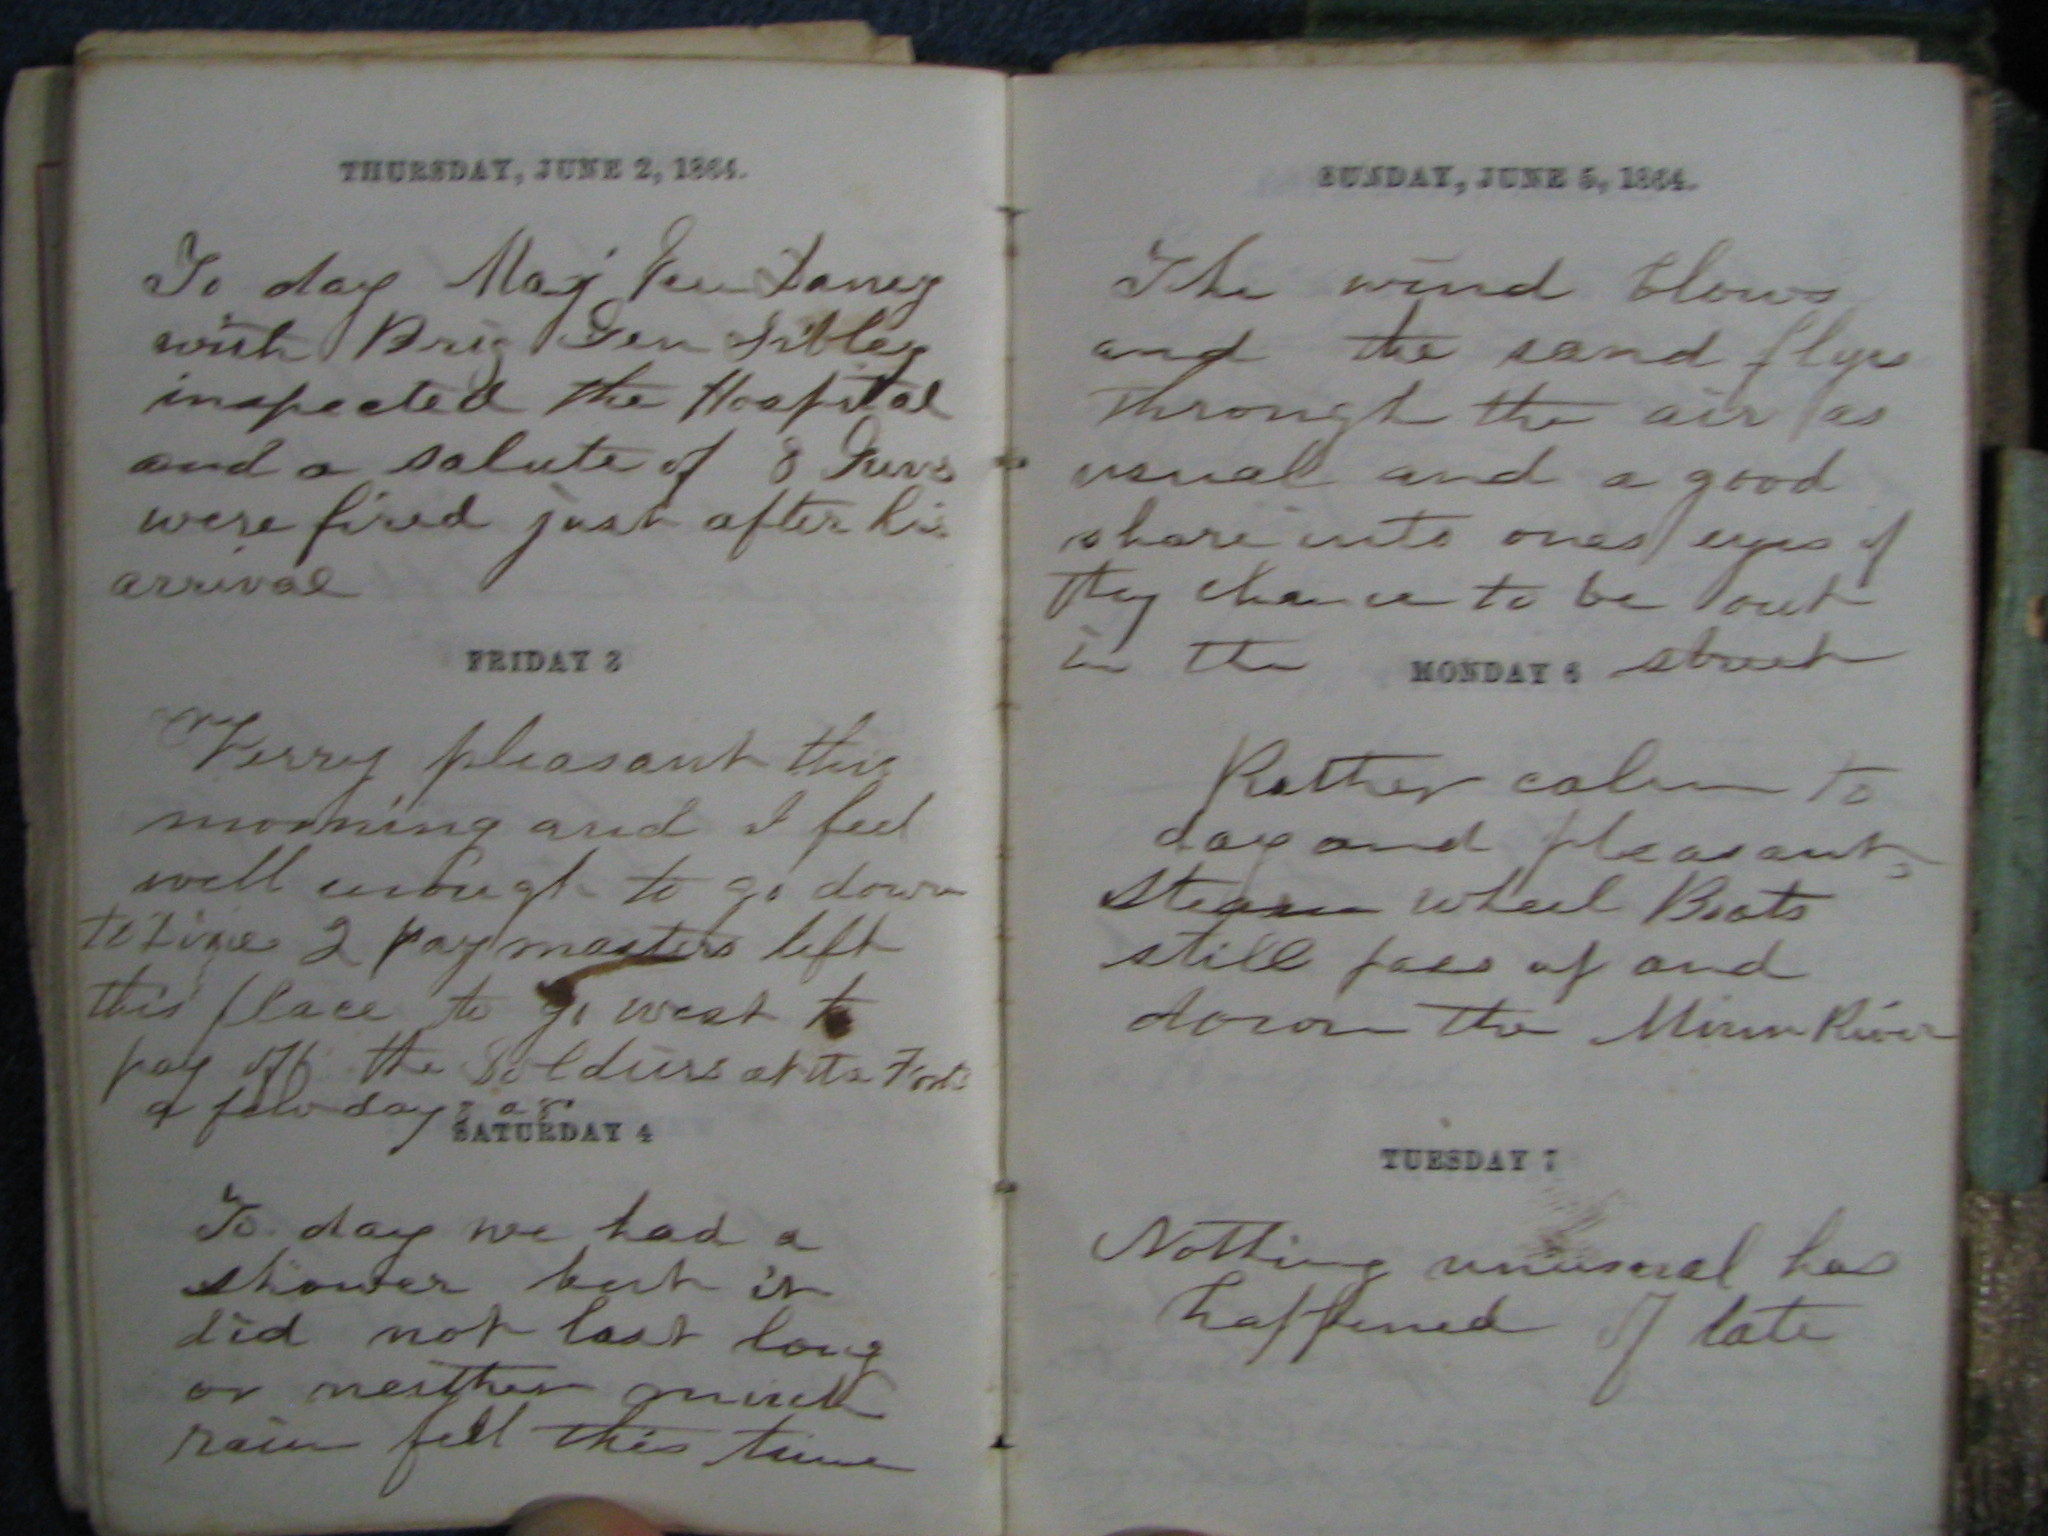 THURSDAY, JUNE 2, 1864.
To day Maj Gen
with Brig Gen Sibley
inspected the Hospital
and a salute of 8 Guns
were fired just after his
arrival
FRIDAY 3
Verry pleasant this
morning and I feel
well enough to go down
to 2 pay masters left
this place to go west to
pay off the Soldiers at the Forts
a few days ago
SATURDAY 4
To day we had a
shower but it
did not last long
or neither much
rain fell this time
SUNDAY, JUNE 5, 1864.
The wind blows
and the sand flys
through the air as
usual and a good
share into ones eyes if
they chance to be out
in the street
MONDAY 6
Rather calm to
day and pleasant
Steam wheel Boats
still pass up and
down the Minn River
TUESDAY 7
Nothing unusual has
happened of late